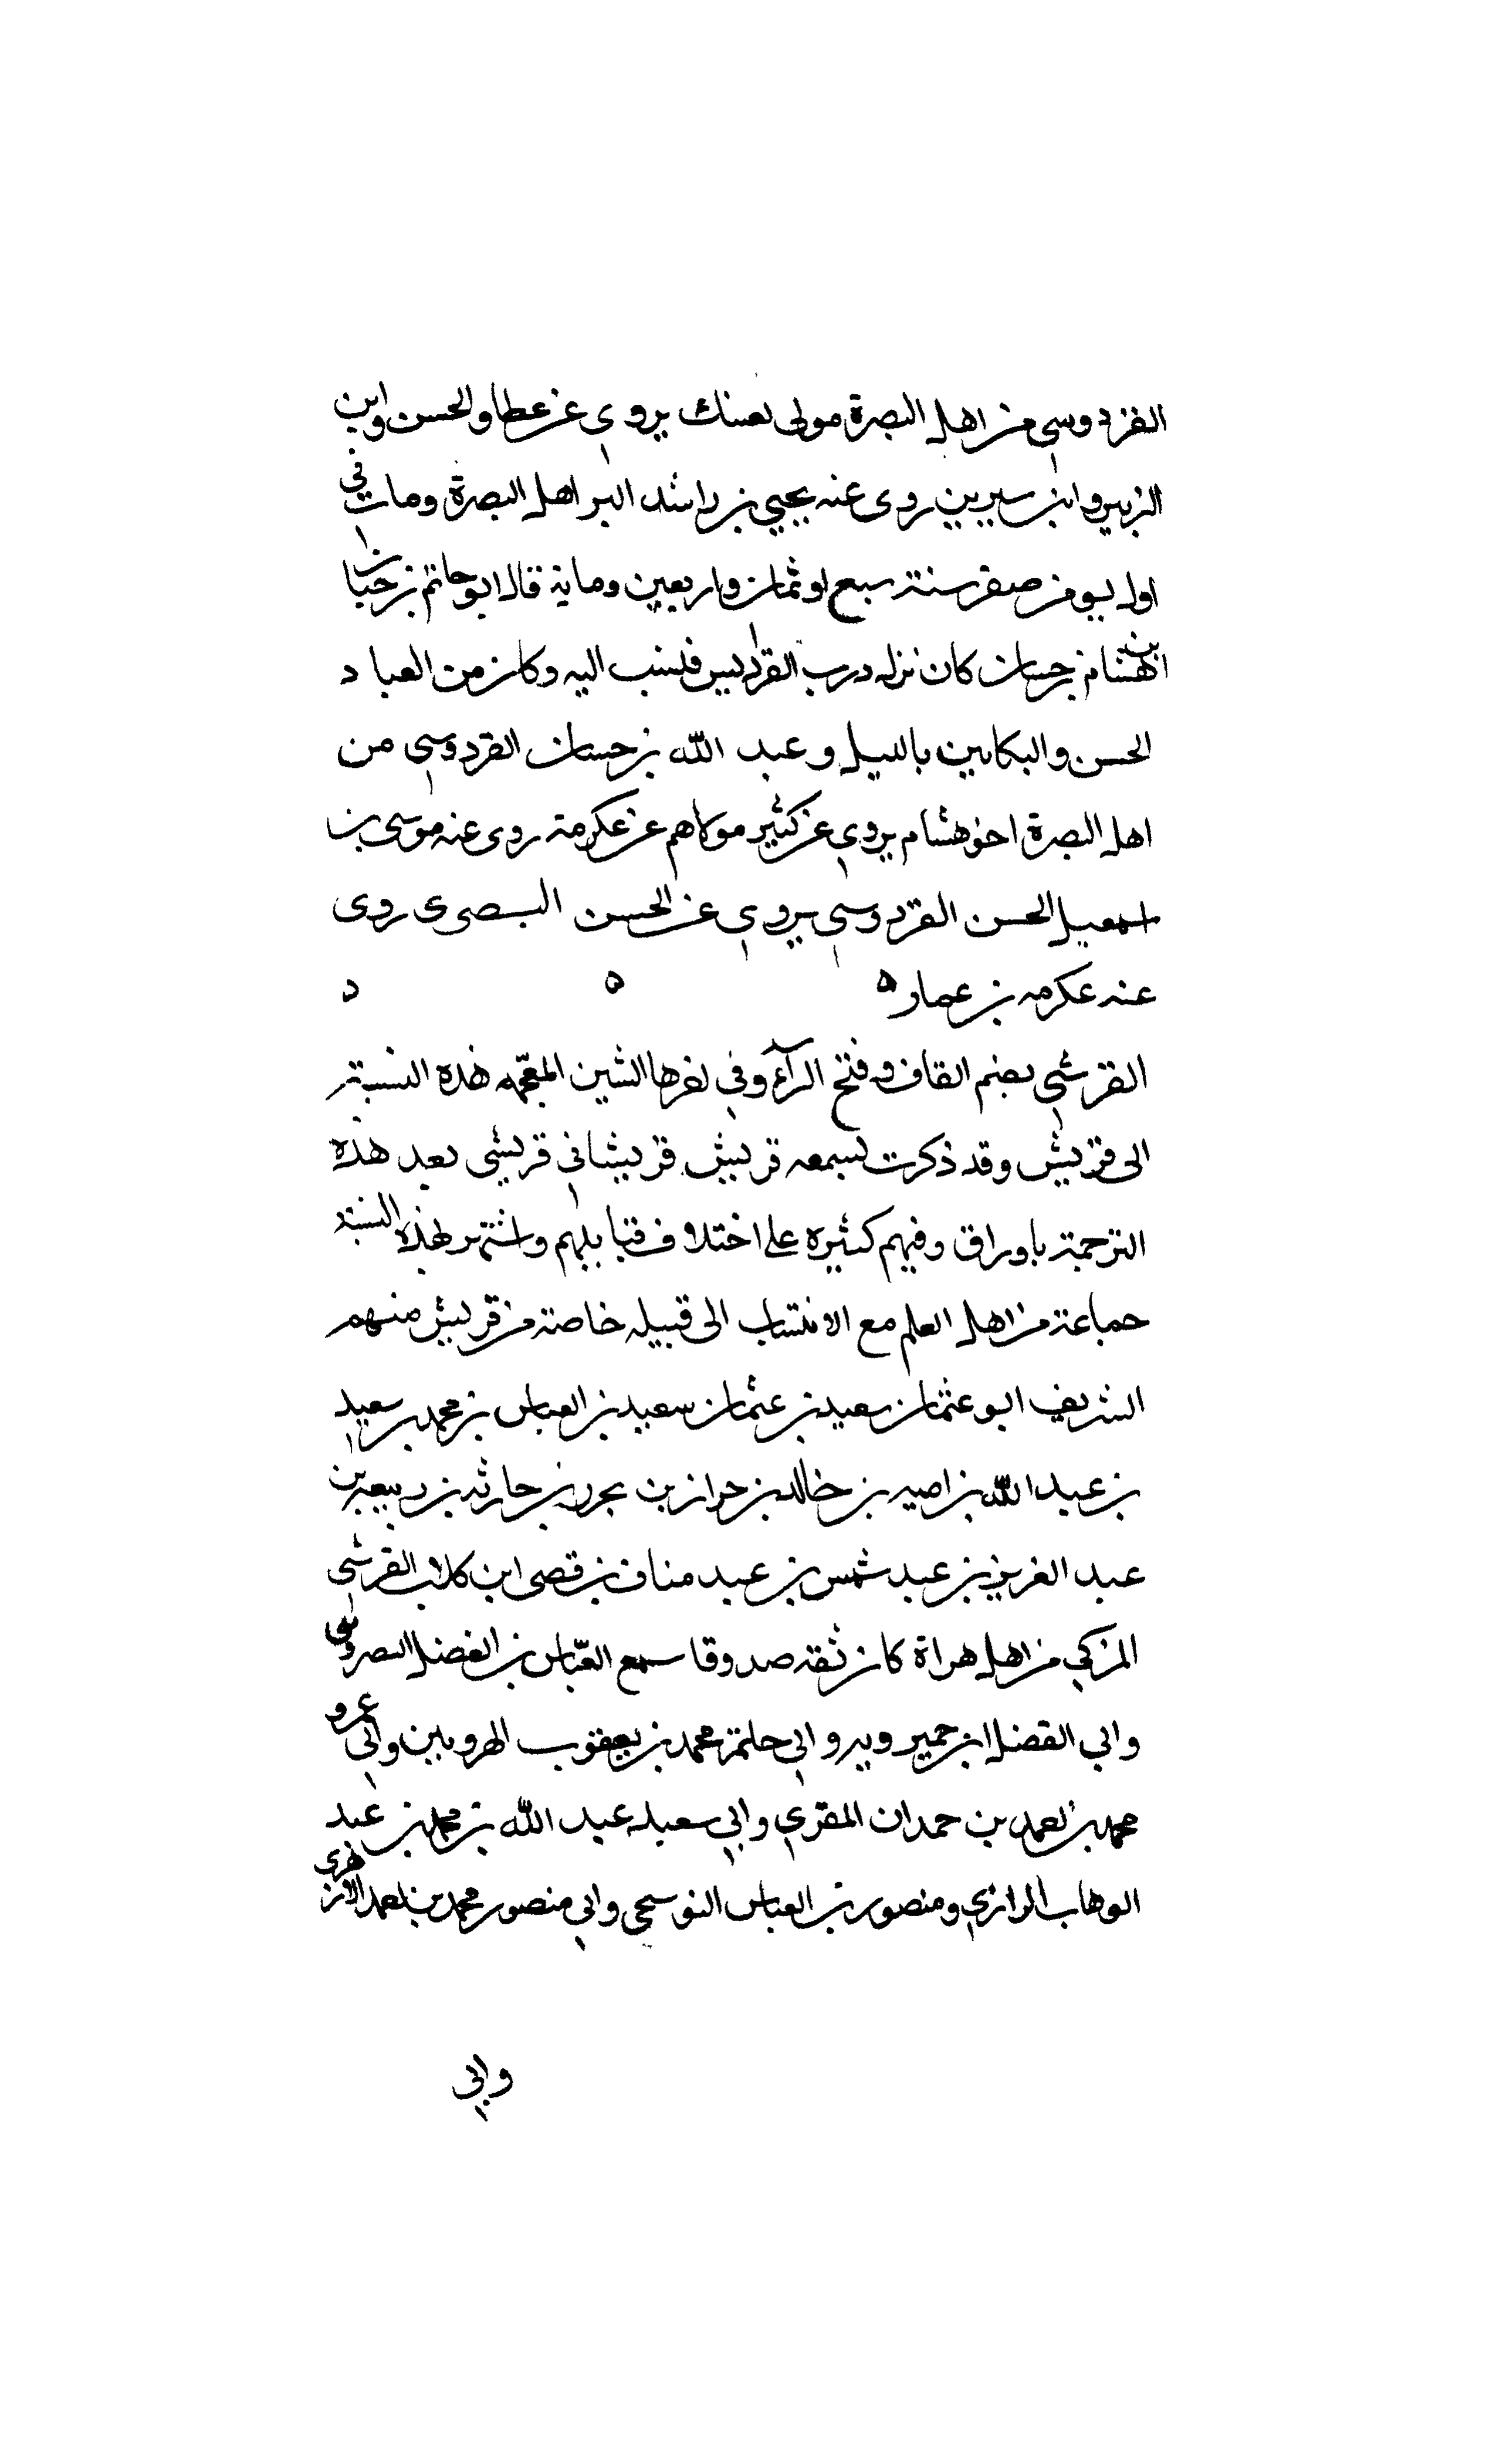 القردوسي من اهل البصرة مولى لعتيك يروي عن عطا والحسن وابن
الزبير وابن سيرين روى عنه يحيي بن راشد البر اهل البصرة ومات في
اول يوم من صفر سنة سبع او ثمان واربعين وماية قال ابو حاتم بن حبان
ان هشام بن حسان كان نزل درب القراديس فنسب اليه وكان من العباد
الحسن والبكايين بالليل وعبد الله بن حسان القردوسي من
اهل البصرة اخو هشام يروي عن كثير مولاهم عن عكرمة روى عنه موسى بن
اسمعيل الحسن القردوسي يروي عن الحسن البصرى روى
عنه عكرمه بن عمار ه ه د
القرشي بضم القاف وفتح الرآء وفي اخرها الشين المعجمه هذه النسبة
الى قريش وقد ذكرت لسمعه قريش قريشاني قريشي بعد هذه
الترجمة باوراق وفيهم كثيره على اختلاف قبايلهم واشتهر بهذه النسبة
جماعة من اهل العلم مع الانتساب الى قبيله خاصة من قريش منهم
الشريف ابو عثمان سعيد بن عثمان سعيد بن العباس بن محمد بن سعيد
بن عبد الله بن اميه بن خالد بن حراز بن بحرر بن حارثه بن ربيعه بن
عبد العزيز بن عبد شمس بن عبد مناف بن قصى ابن كلاب القرشي
المزكي من اهل هراة كان ثقه صدوقا سمع العباس بن الفضل النصروىى
وابي الفضل ابن حميرويه وابي حاتم محمد بن يعقوب الهرويين وابي عمرو
محمد بن احمد بن حمدان المقري وابي سعيد عبد الله بن محمد بن عبد
الوهاب الرازي ومنصور بن العباس النوسحى وابي منصور محمد بن احمد الازهري
وابي